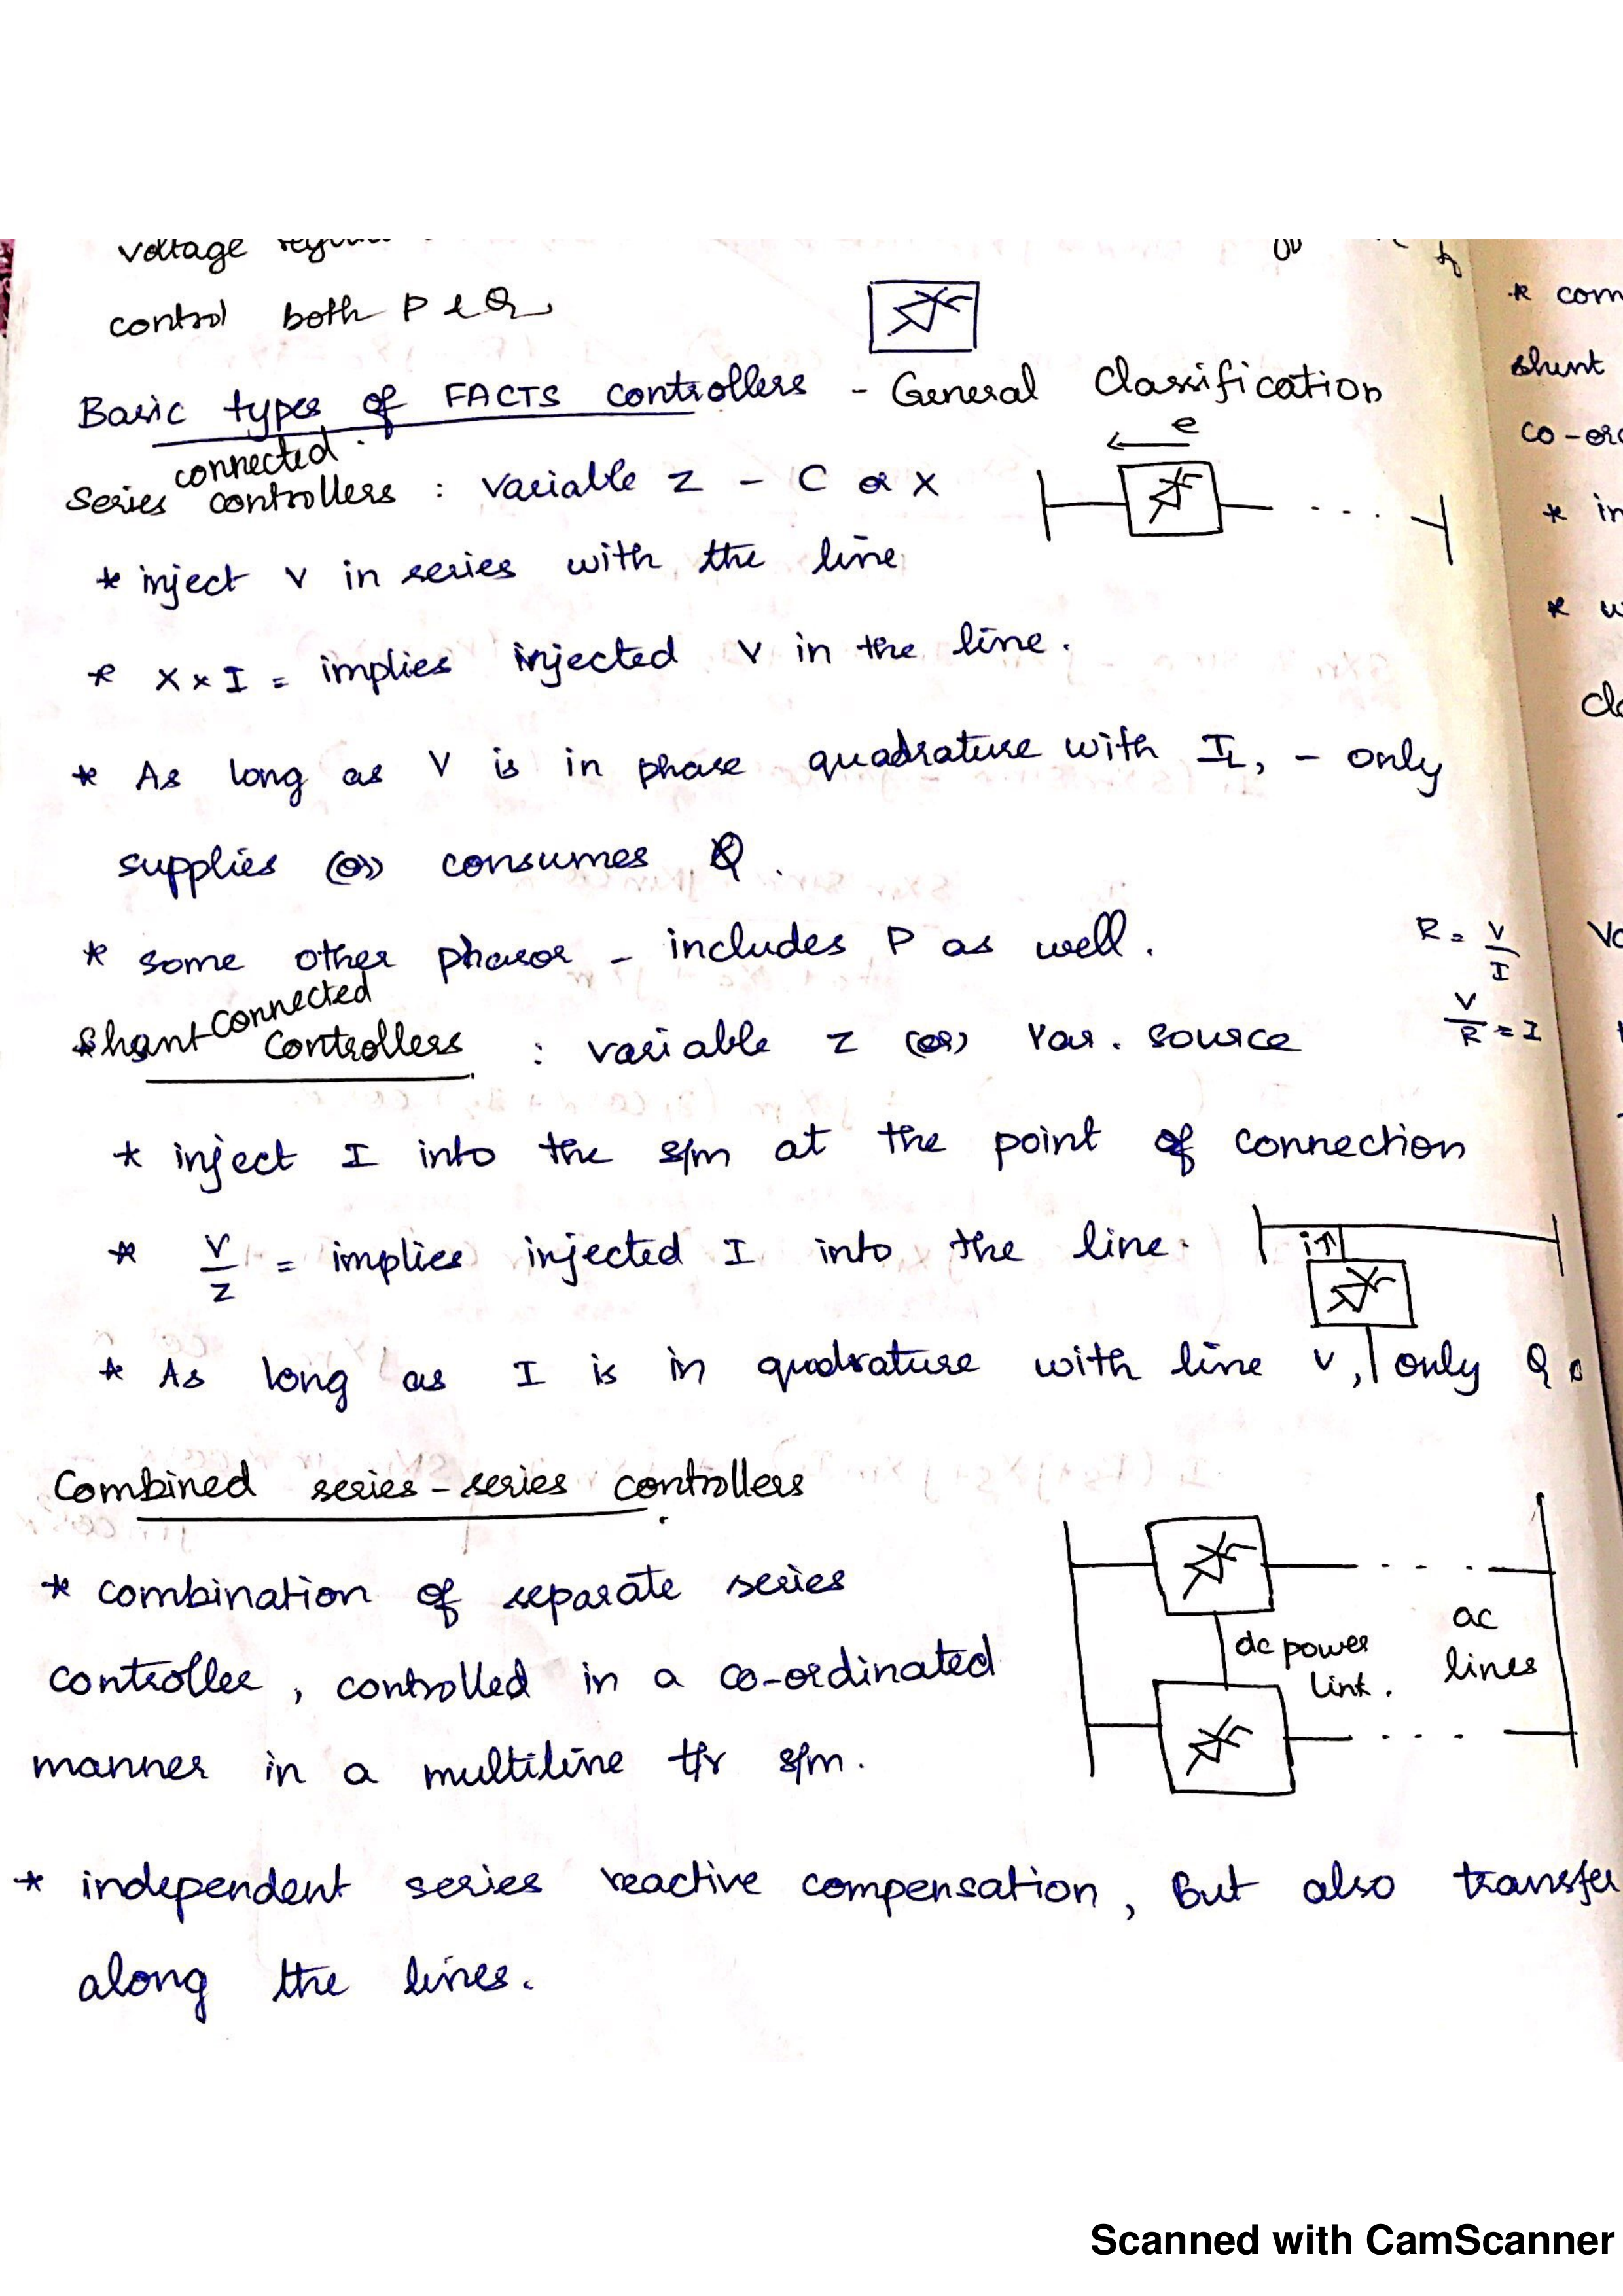 voltage
control both P & Q
Basic types of FACTS controllers - General Classification
e
connected
Series controllers : Variable Z - C or X
* inject V in series with the line
* X x I = implies injected V in the line.
* As long as V is in phase quadrature with IL, - only
supplies (or) consumes Q.
* some other phasor - includes P as well.
R = V/I
connected
Shunt controllers : variable Z (or) Var. source
V/R = I
* inject I into the s/m at the point of connection
* V/Z = implies injected I into the line.
i↑
* As long as I is in quadrature with line V, only Q.
Combined series-series controllers
* combination of separate series
controller, controlled in a co-ordinated
manner in a multiline t/r s/m.
dc power
link.
ac
lines
* independent series reactive compensation, But also transfer
along the lines.
* com
shunt
co-or
* in
*
Scanned with CamScanner